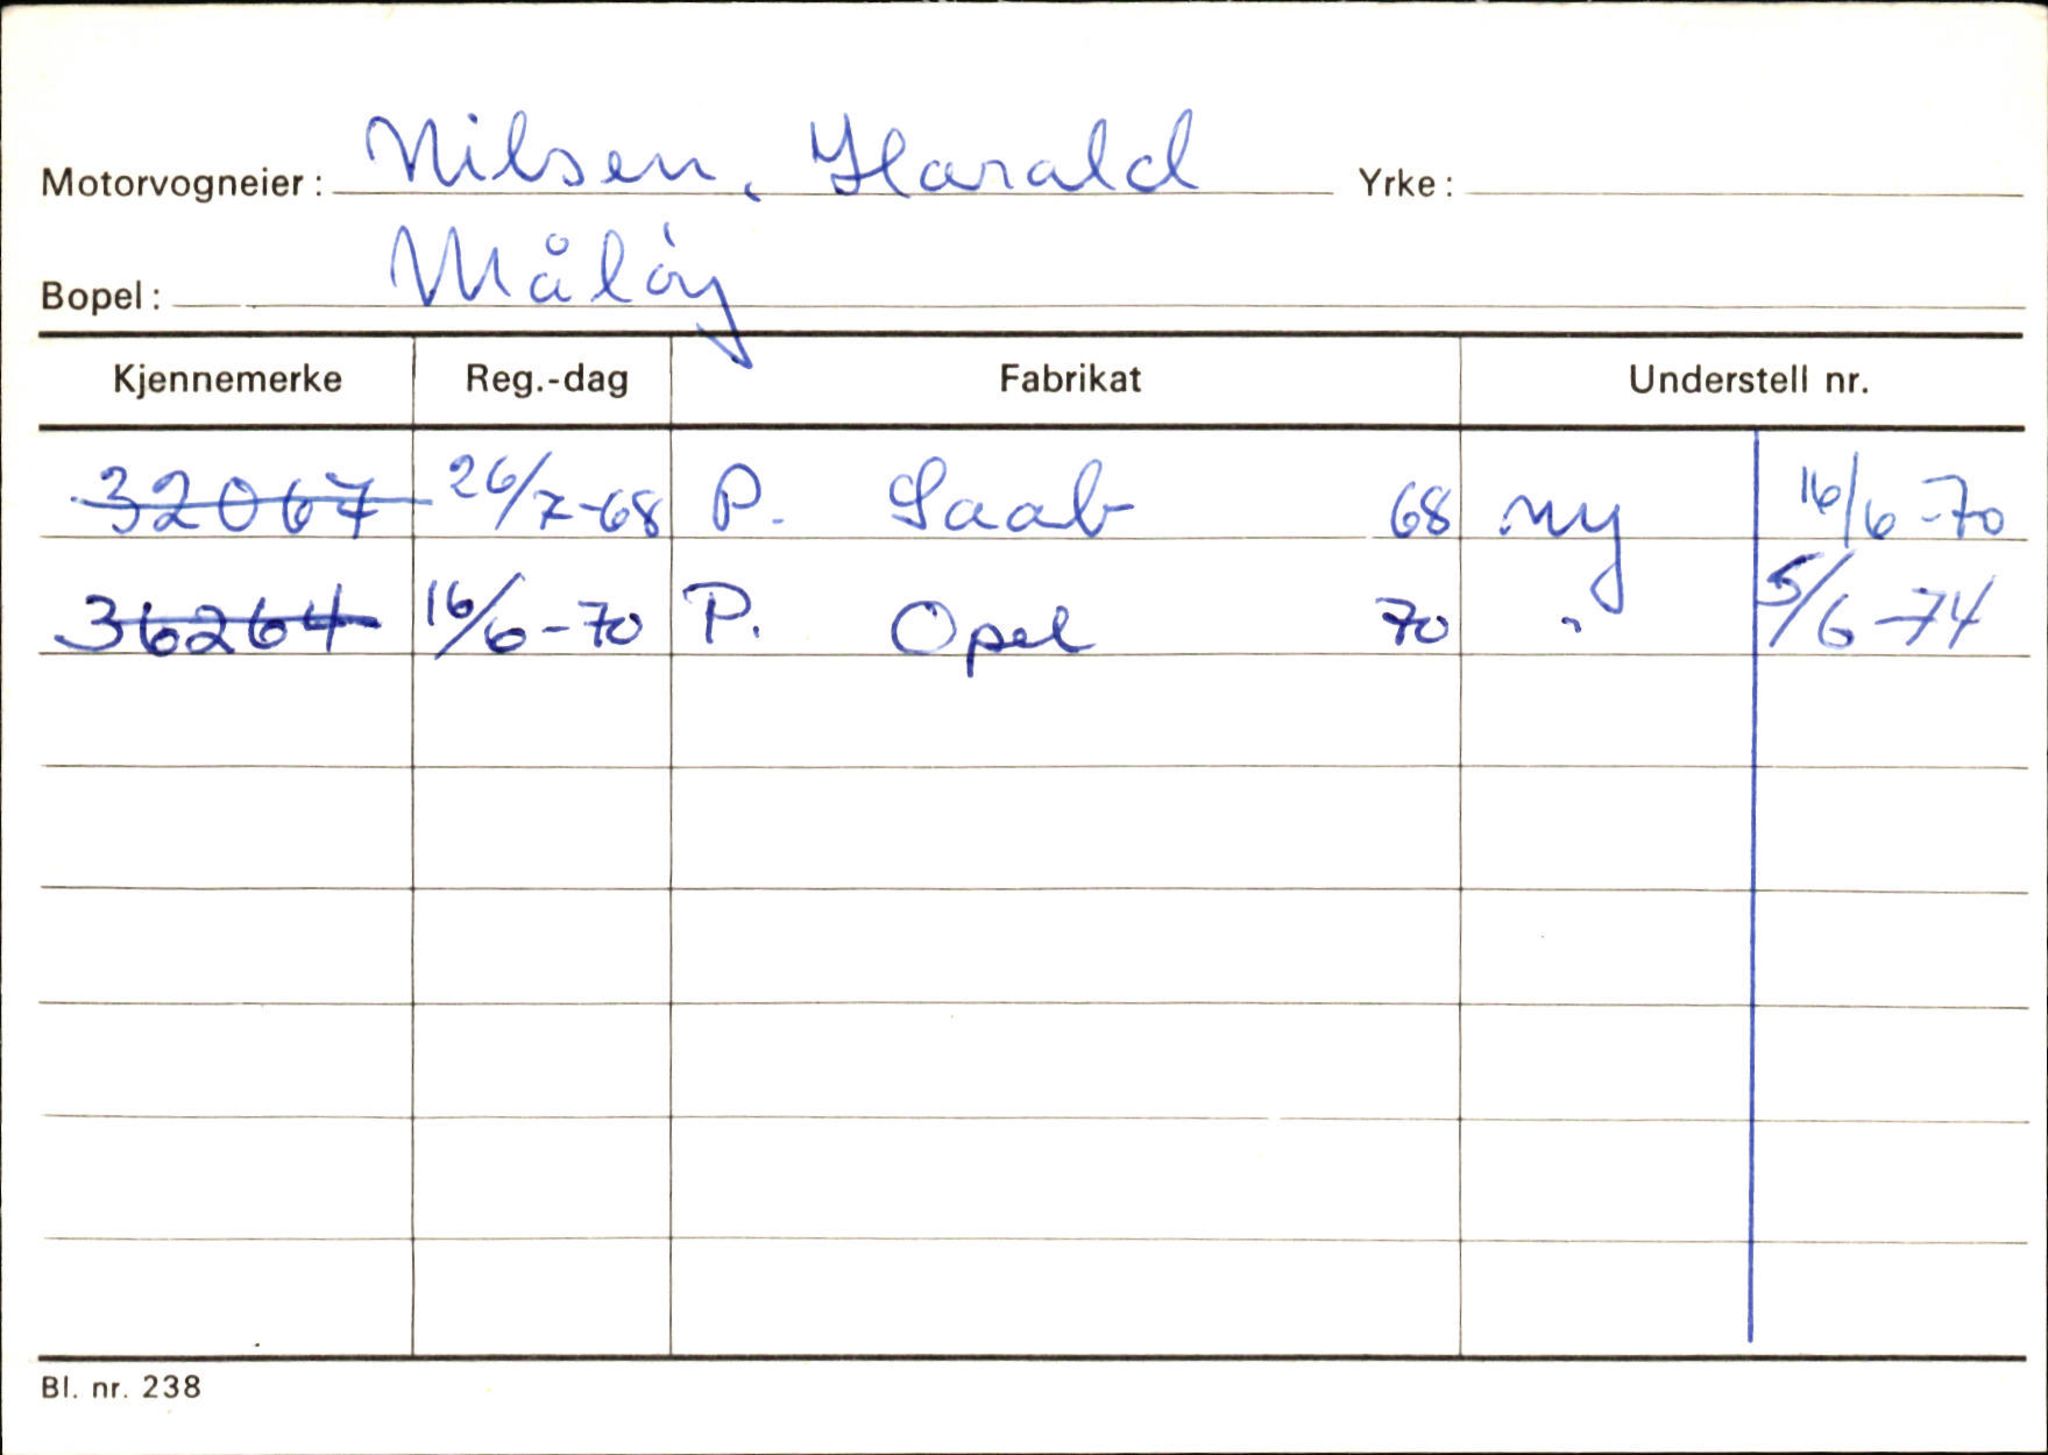 Motorvogneier: Nilsen, Harald Yrke:
Bopel: Måløy
Kjennemerke Reg.-dag Fabrikat Understell nr.
32067 26/7-68 P. Saab 68 ny 16/6-70
36264 16/6-70 P. Opel 70 " 5/6-74
Bl. nr. 238